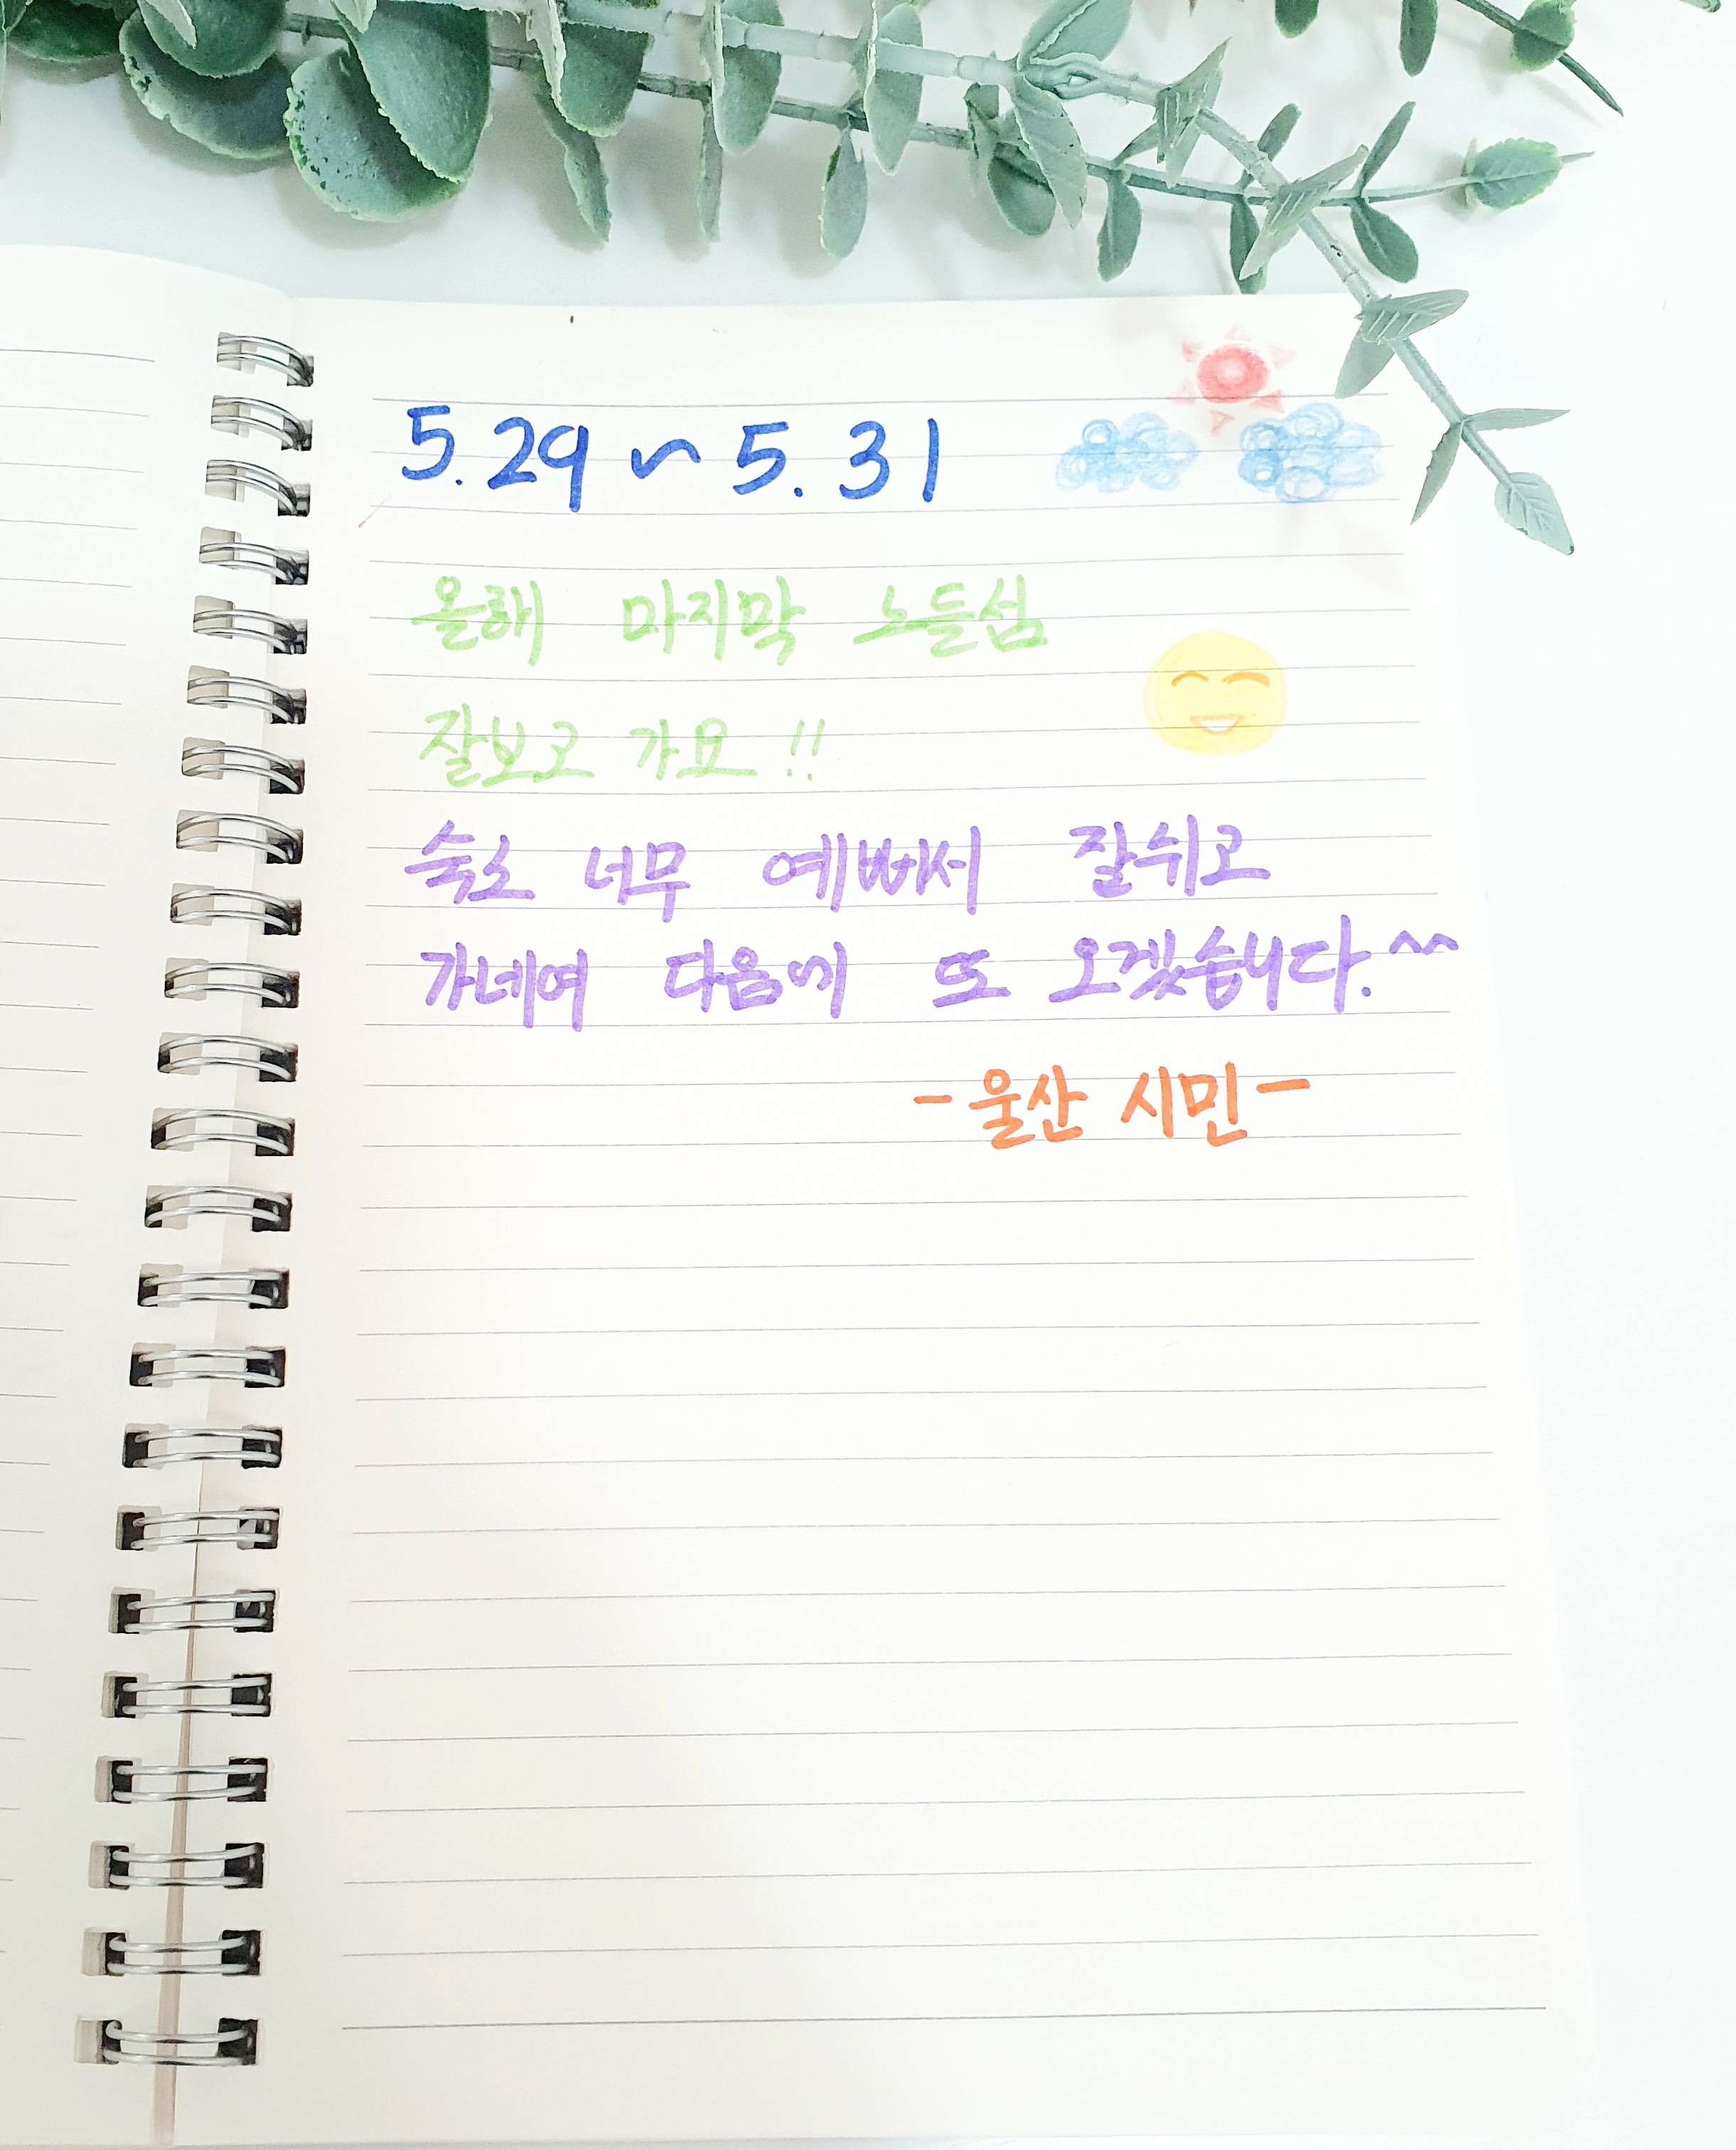 5.29 ~ 5.31
올해 마지막 노들섬
잘보고 가요 !!
숙소 너무 예뻐서 잘쉬고
가네여 다음에 또 오겠습니다.^^
-울산 시민-